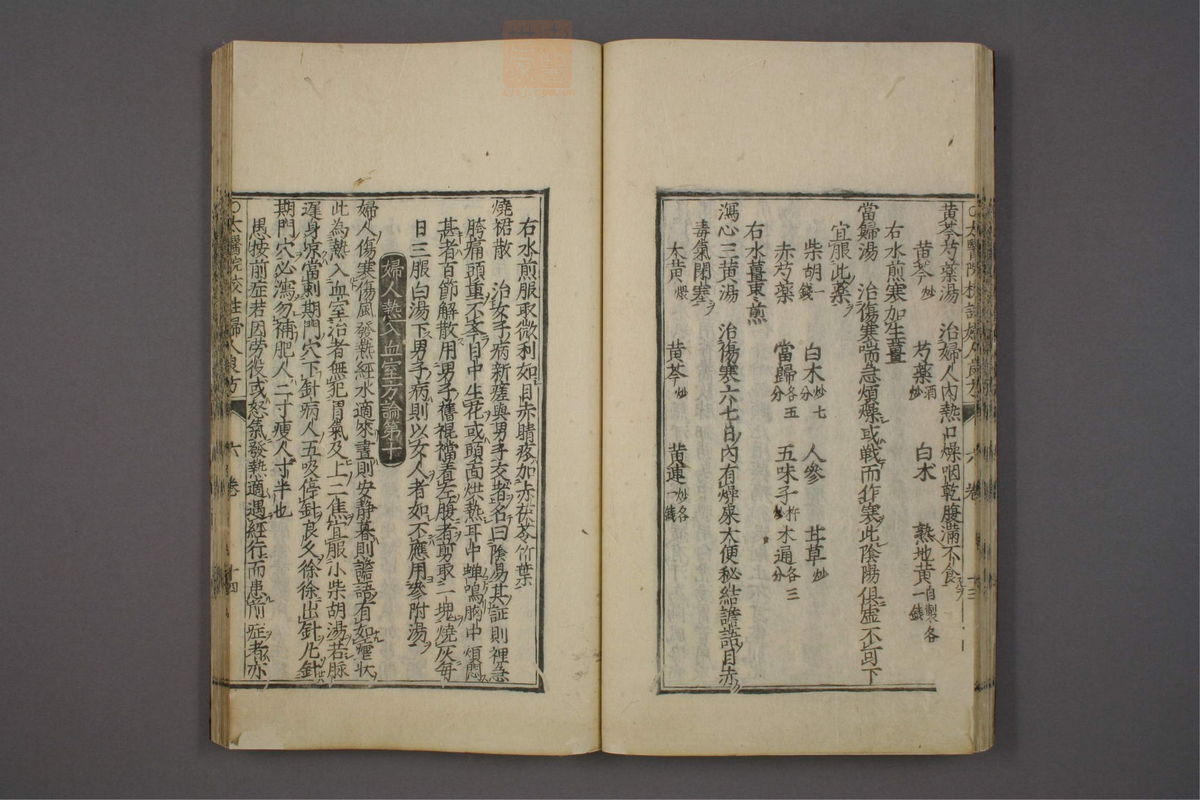 黃芩芍藥湯　治婦人內熱口燥咽乾腹滿不食
黃芩炒　芍藥酒炒　白朮　熟地黃自製各一錢
右水煎寒加生薑
當歸湯　治傷寒喘急煩燥或戰而作寒此陰陽俱虛不可下
宜服此藥
柴胡一錢　白朮炒七分　人參　甘草炒
赤芍藥　當歸各五分　五味子杵炒　木通各三分
右水薑棗煎
瀉心三黃湯　治傷寒六七日內有燥屎大便秘結譫語目赤
毒氣閉塞
大黃煨　黃芩炒　黃連炒各一錢
六卷　十三
右水煎服取微利如目赤睛疼加赤茯苓竹葉
燒裙散　治女子病新瘥與男子交者名曰陰易其証則裡急
胯痛頭重不支目中生花或頭面烘熱耳中蟬鳴胸中煩悶
甚者百節解散用男子舊裩襠着左腹者剪取一塊燒灰每
日三服白湯下男子病則以女人者如不應用參附湯
婦人熱入血室方論第十
婦人傷寒傷風發熱經水適來晝則安靜暮則譫語有如瘧狀
此為熱入血室治者無犯胃氣及上二焦宜服小柴胡湯若脉
遲身凉當刺期門穴下針病人五吸停針良久徐徐出針凡針
期門穴必瀉勿補肥人二寸瘦人寸半也
愚按前症若因勞役或怒氣發熱適遇經行而患前症者亦
○太醫院校註婦人良方　六卷　十四